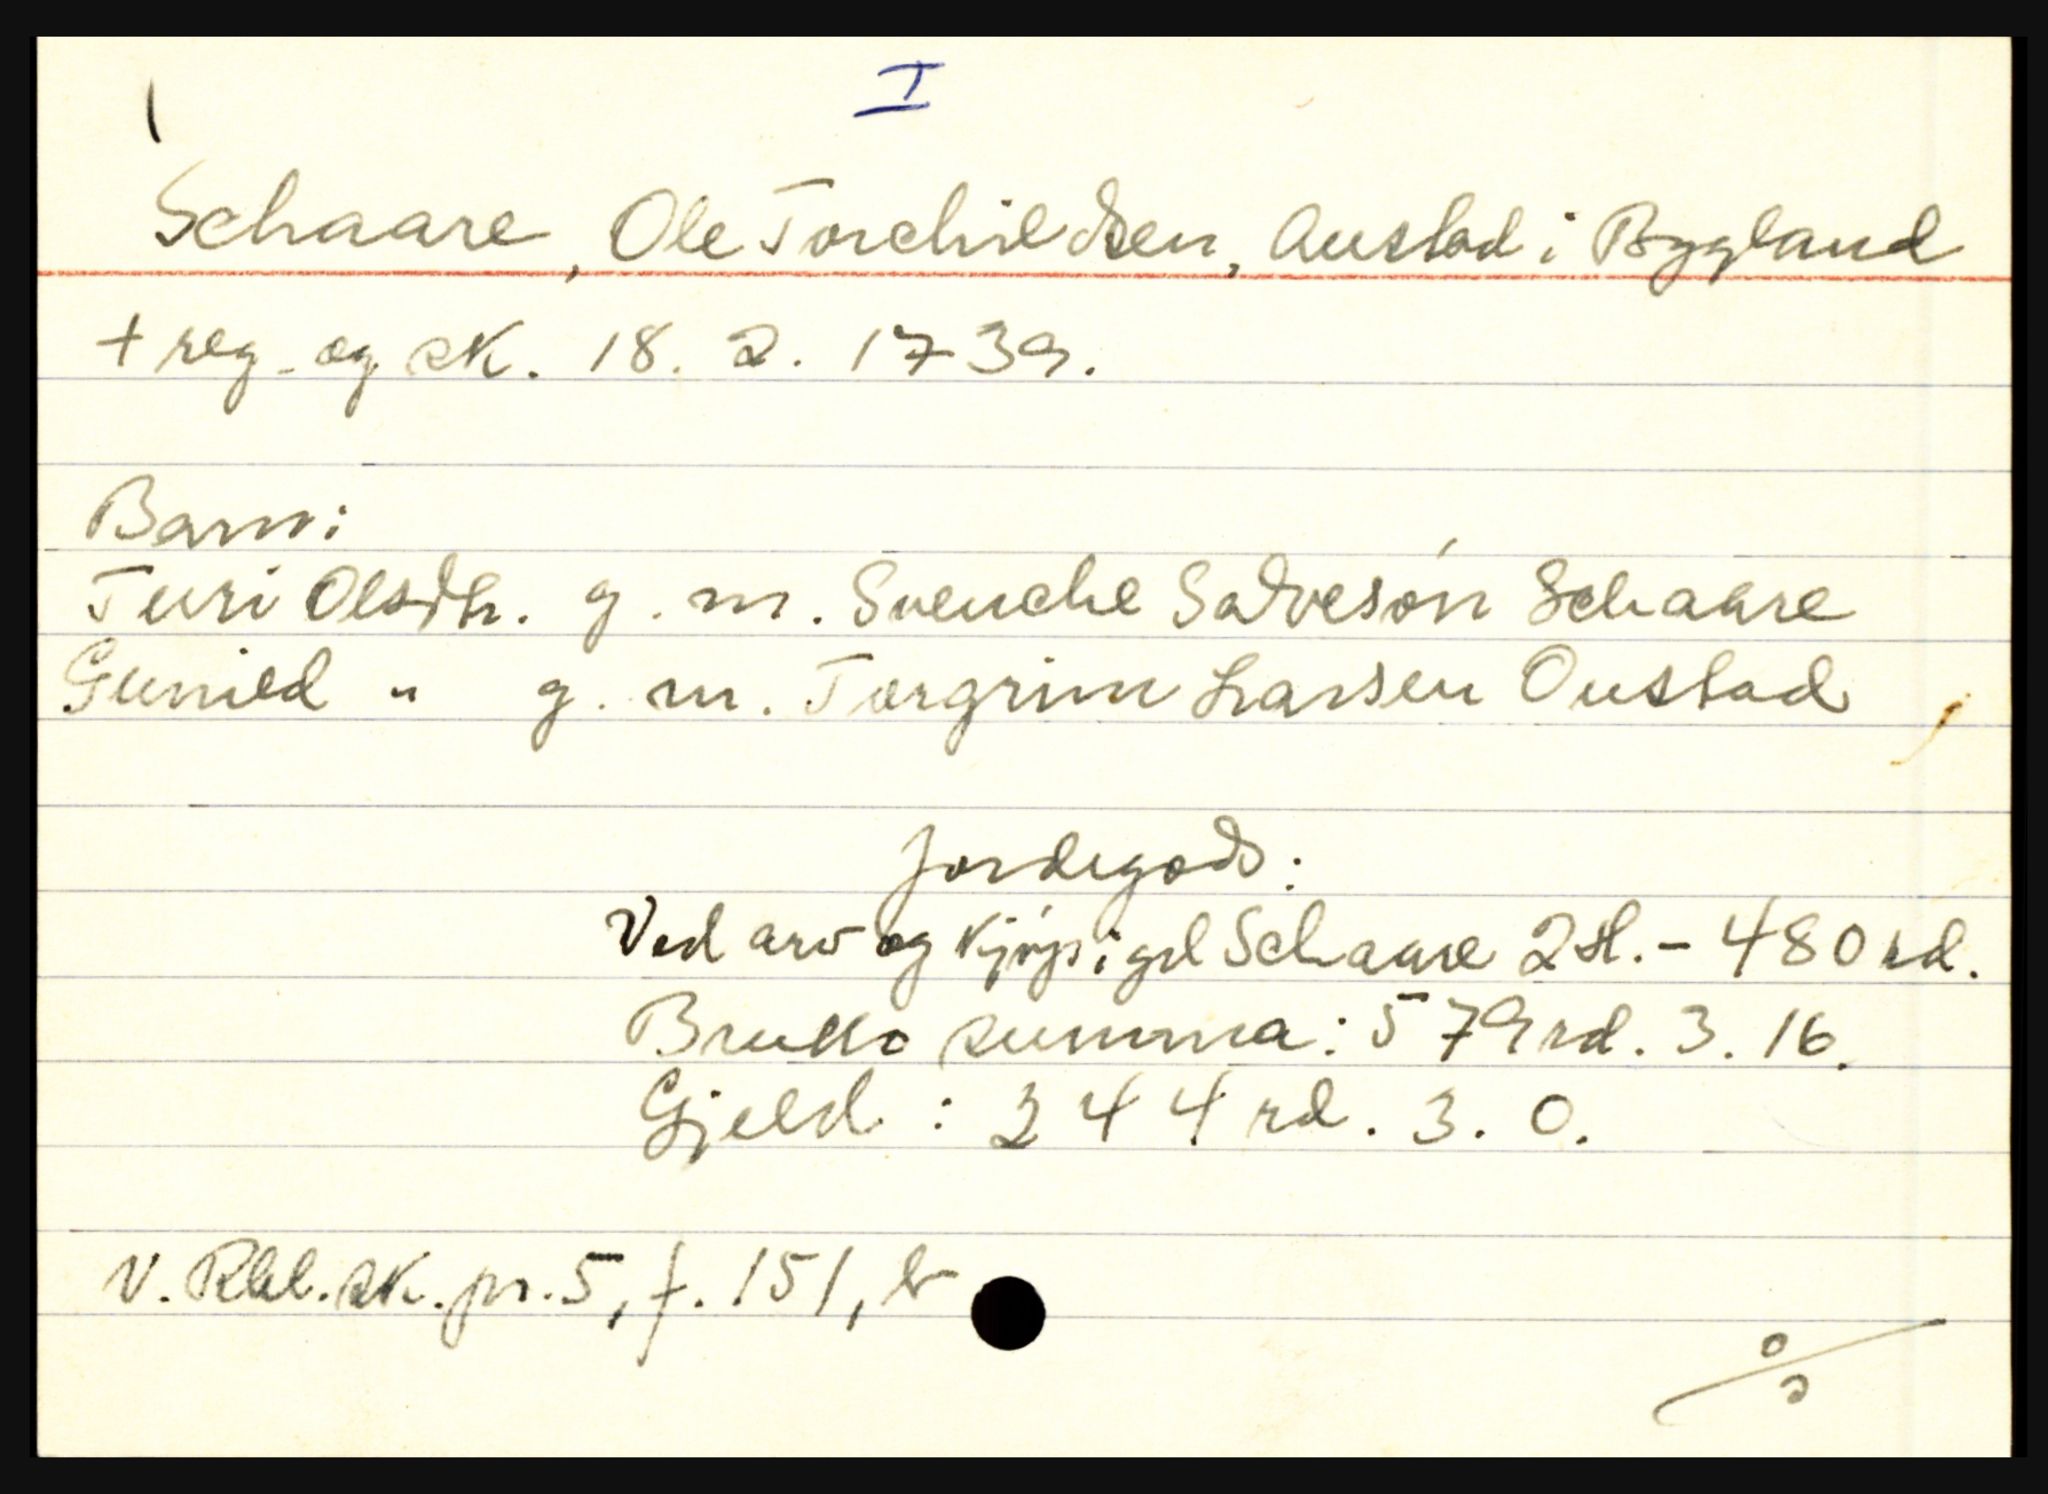 I
Schaare, Ole Torchildsen, Austad i Bygland
+ reg. og sk. 18. 2. 1739.
Barn:
Turi Olsdtr. g. m. Svenche Salvesøn Schaare
Gunild " g. m. Torgrim Larsen Oustad
Jordegods:
Ved arv og kjøp i gd Schaare 2 hd. - 480 rd.
Brutto summa: 579 rd. 3. 16.
Gjeld: 244 rd. 3. 0.
V. Rbl. sk. pr. 5, f. 151, b